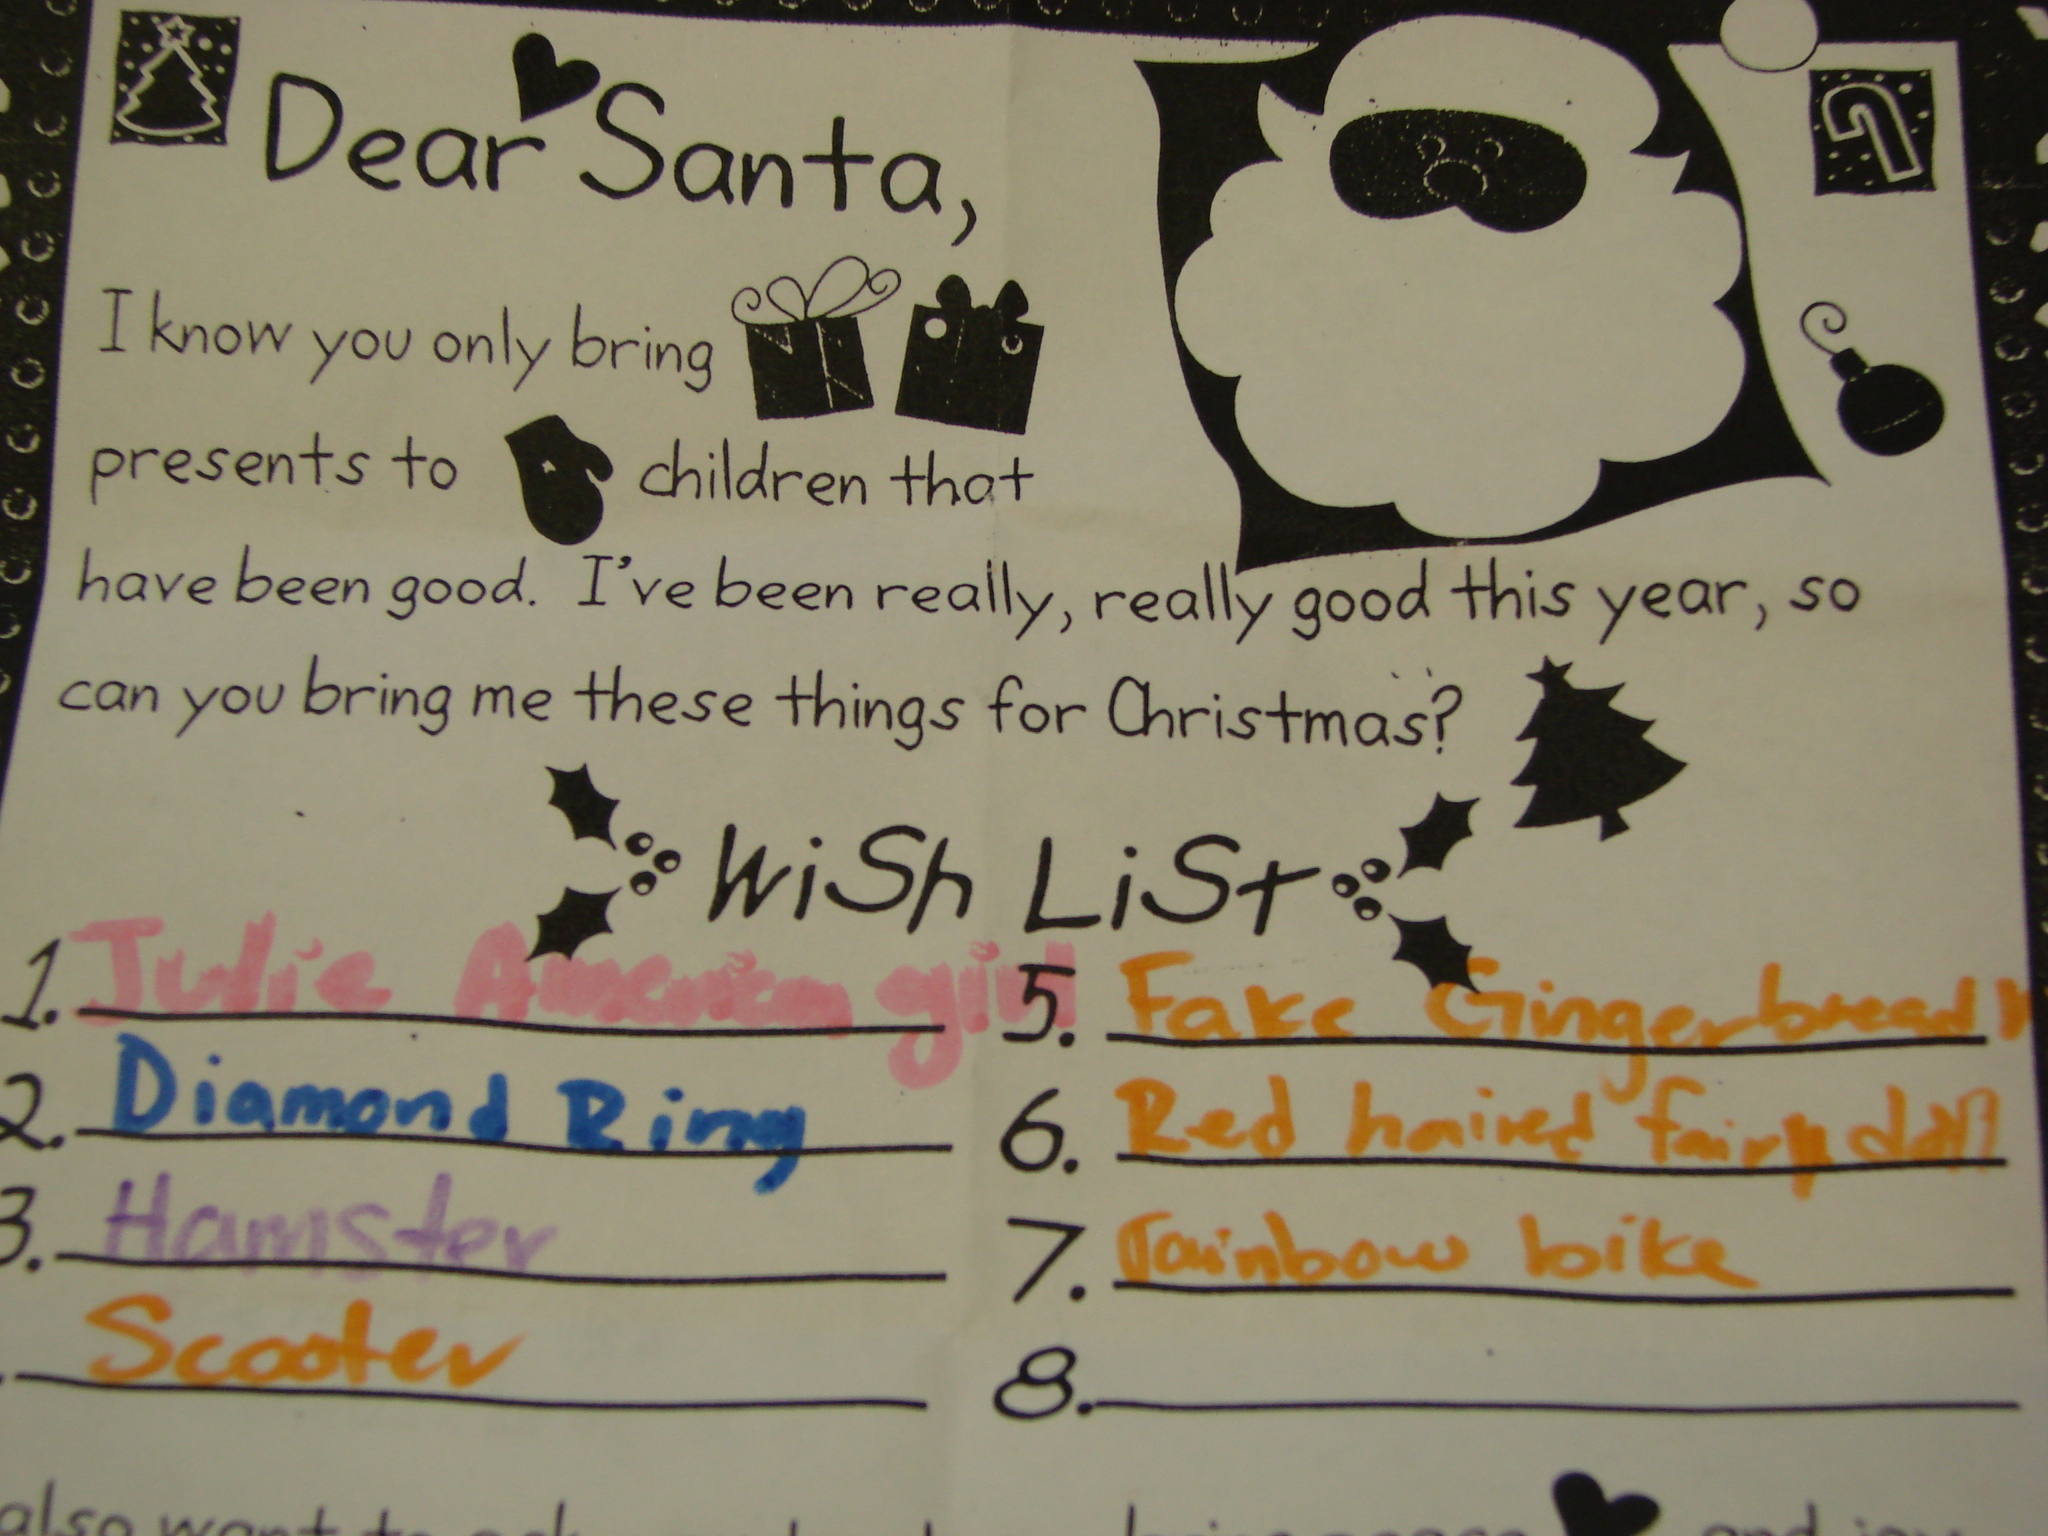 Dear Santa,
I know you only bring
presents to children that
have been good. I've been really, really good this year, so
can you bring me these things for Christmas?
WiSh LiSt
1. Julie American girl
2. Diamond Ring
3. Hamster
Scooter
5. Fake Gingerbread
6. Red haired fairy doll
7. rainbow bike
8.
also want to ask